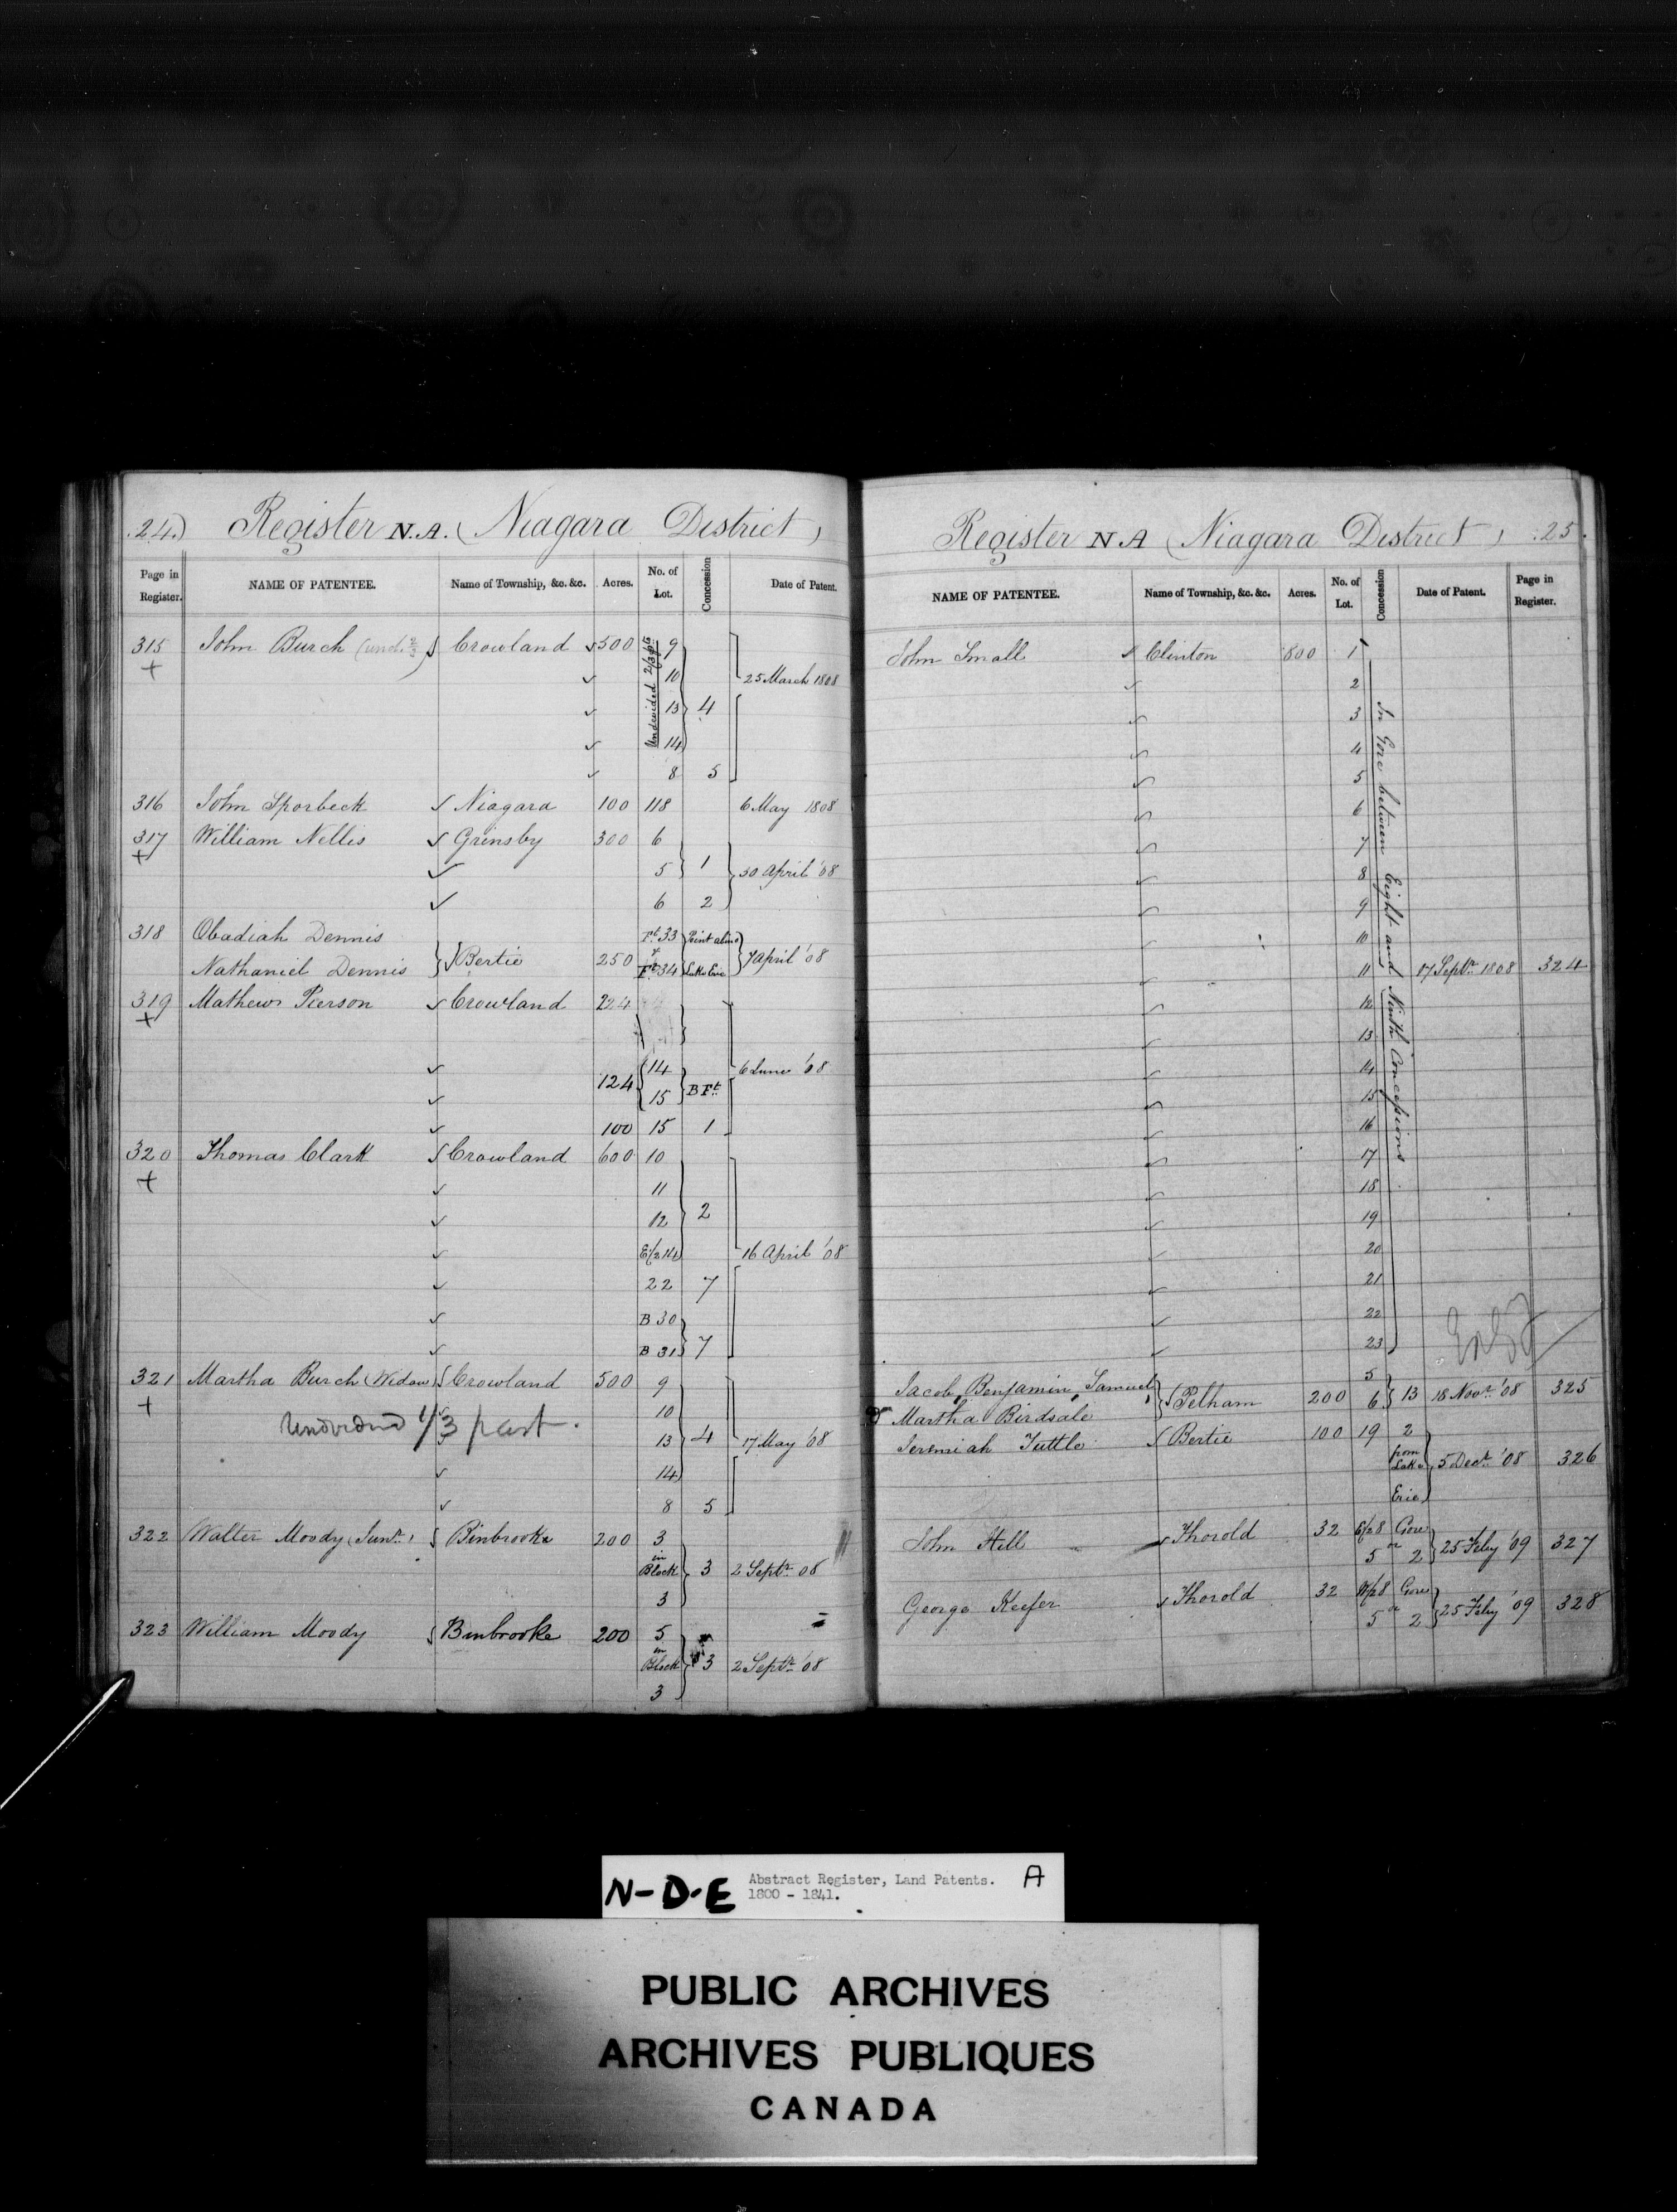 24.) Register N.A. (Niagara District)
Page in Register. NAME OF PATENTEE. Name of Township, &c. &c. Acres. No. of Lot. Concession Date of Patent.
315 John Burch (und. 2/3) Crowland 500 9
+ 10 25 March 1808
Undevided 2/3 pts
13 4
14
8 5
316 John Sporbeck Niagara 100 118 6 May 1808
317 William Nellis Grimsby 300 6
+ 5 1 30 April '08
6 2
318 Obadiah Dennis Ft. 33 Point abino
Nathaniel Dennis Bertie 250 & Ft. 34 Lake Erie 7 April '08
319 Mathew Pierson Crowland 224
+
14 6 June '08
124 B Ft.
15
100 15 1
320 Thomas Clark Crowland 600 10
+ 11
12 2
E/2 14 16 April '08
22 7
B 30
B 31 7
321 Martha Burch (Widow) Crowland 500 9
+ 10
Undivided 1/3 part.
13 4 17 May '08
14
8 5
322 Walter Moody (Junr.) Binbrooke 200 3
in Block 3 2 Septr. 08
3
323 William Moody Binbrooke 200 5
in Block 3 2 Septr. '08
3
Register N A (Niagara District) .25.
NAME OF PATENTEE. Name of Township, &c. &c. Acres. No. of Lot. Concession Date of Patent. Page in Register.
John Small Clinton 800 1
2
3
In Gore between Eight and Ninth Concessions
4
5
6
7
8
9
10
11 17 Septr. 1808 324
12
13
14
15
16
17
18
19
20
21
22
23
Jacob, Benjamin, Samuel, 5
& Martha Birdsale Pelham 200 6 13 18 Novr. '08 325
Jeremiah Tuttle Bertie 100 19 2
from Lake 5 Decr. '08 326
Erie
John Hill Thorold 32 E/2 8 Gore
5 or 2 25 Feby '09 327
George Keefer Thorold 32 W/2 8 Gore
5 or 2 25 Feby '09 328
N-D-E Abstract Register, Land Patents. A
1800 - 1841.
PUBLIC ARCHIVES
ARCHIVES PUBLIQUES
CANADA